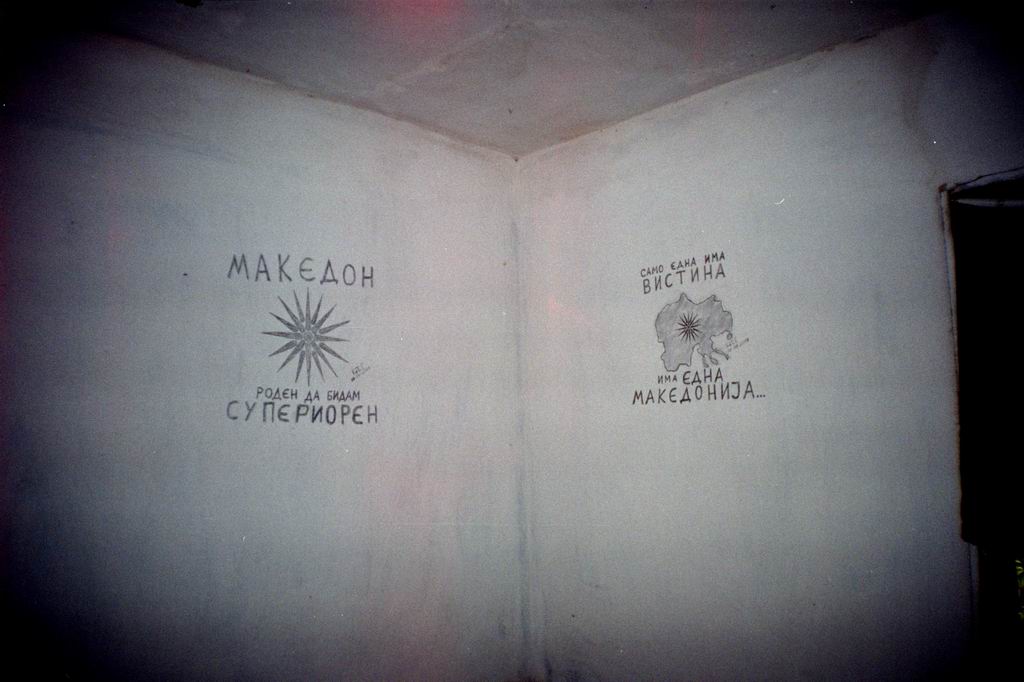 МАКЄДОН
РОДЄН ДА БИДАМ
СУПЄРИОРЄН
САМО ЄДНА ИМА
ВИСТИНА
ИМА ЄДНА
МАКЄДОНИЈА...